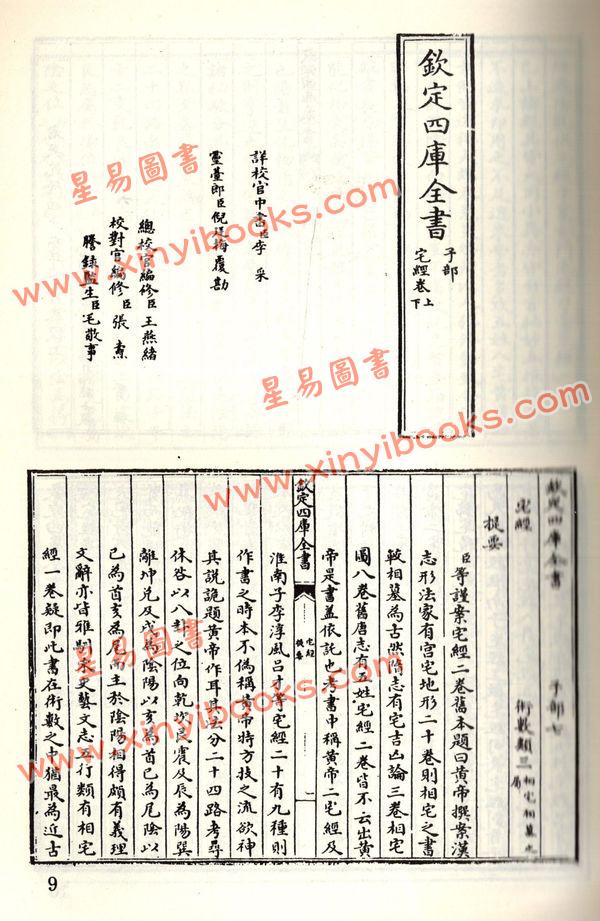 欽定四庫全書
子部
宅經卷上下
詳校官中書臣李采
靈臺郎臣倪廷梅覆勘
總校官編修臣王燕緒
校對官編修臣張燾
謄錄監生臣毛敬事
欽定四庫全書 子部七
宅經 術數類三相宅相墓之屬
提要
臣等謹案宅經二卷舊本題曰黃帝撰案漢
志形法家有宮宅地形二十卷則相宅之書
較相墓為古然隋志有宅吉凶論三卷相宅
圖八卷舊唐志有五姓宅經二卷皆不云出黃
帝是書蓋依託也考書中稱黃帝二宅經及
欽定四庫全書
宅經
提要
一
淮南子李淳風呂才等宅經二十有九種則
作書之時本不偽稱黃帝特方技之流欲神
其說詭題黃帝作耳其法分二十四路考尋
休咎以八卦之位向乾坎艮震及辰為陽巽
離坤兌及戌為陰陽以亥為首巳為尾陰以
巳為首亥為尾而主於陰陽相得頗有義理
文辭亦皆雅馴宋史藝文志五行類有相宅
經一卷疑即此書在術數之中猶最為近古
9
星易圖書
www.xinyibooks.com
www.xinyibooks.com
星易圖書
www.xinyibooks.com
www.xinyibooks.com